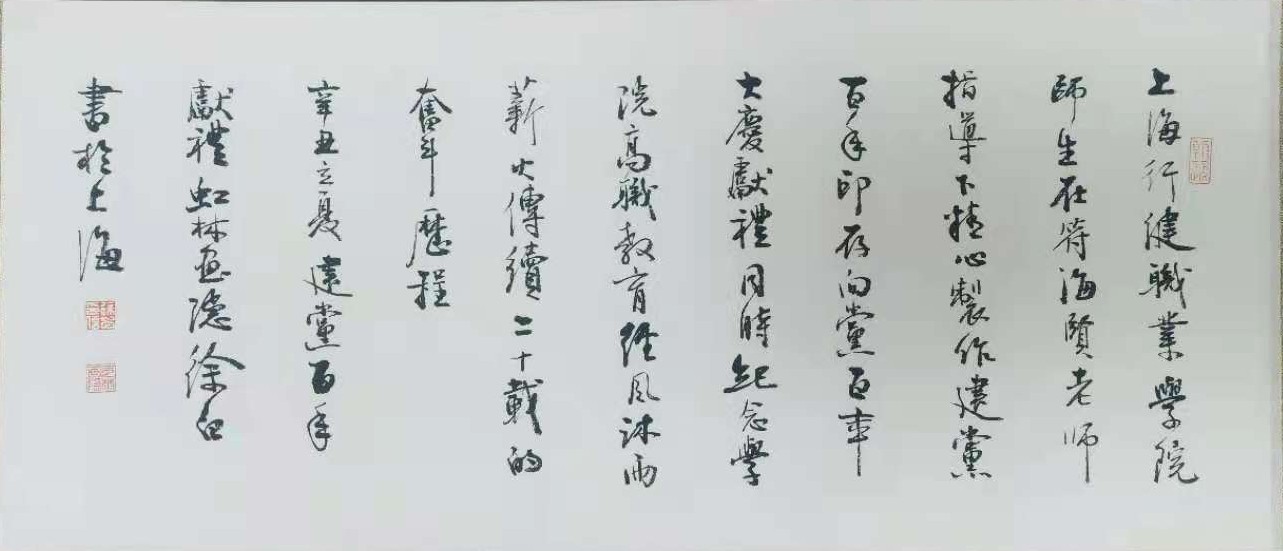 上海行健職業學院
師生在符海賢老师
指導下精心製作建黨
百年印存向黨百年
大慶獻禮同時紀念學
院高職教育經風沐雨
薪火傳續二十載的
奮斗歷程
辛丑立夏建黨百年
獻禮虹林画隐徐白
書於上海